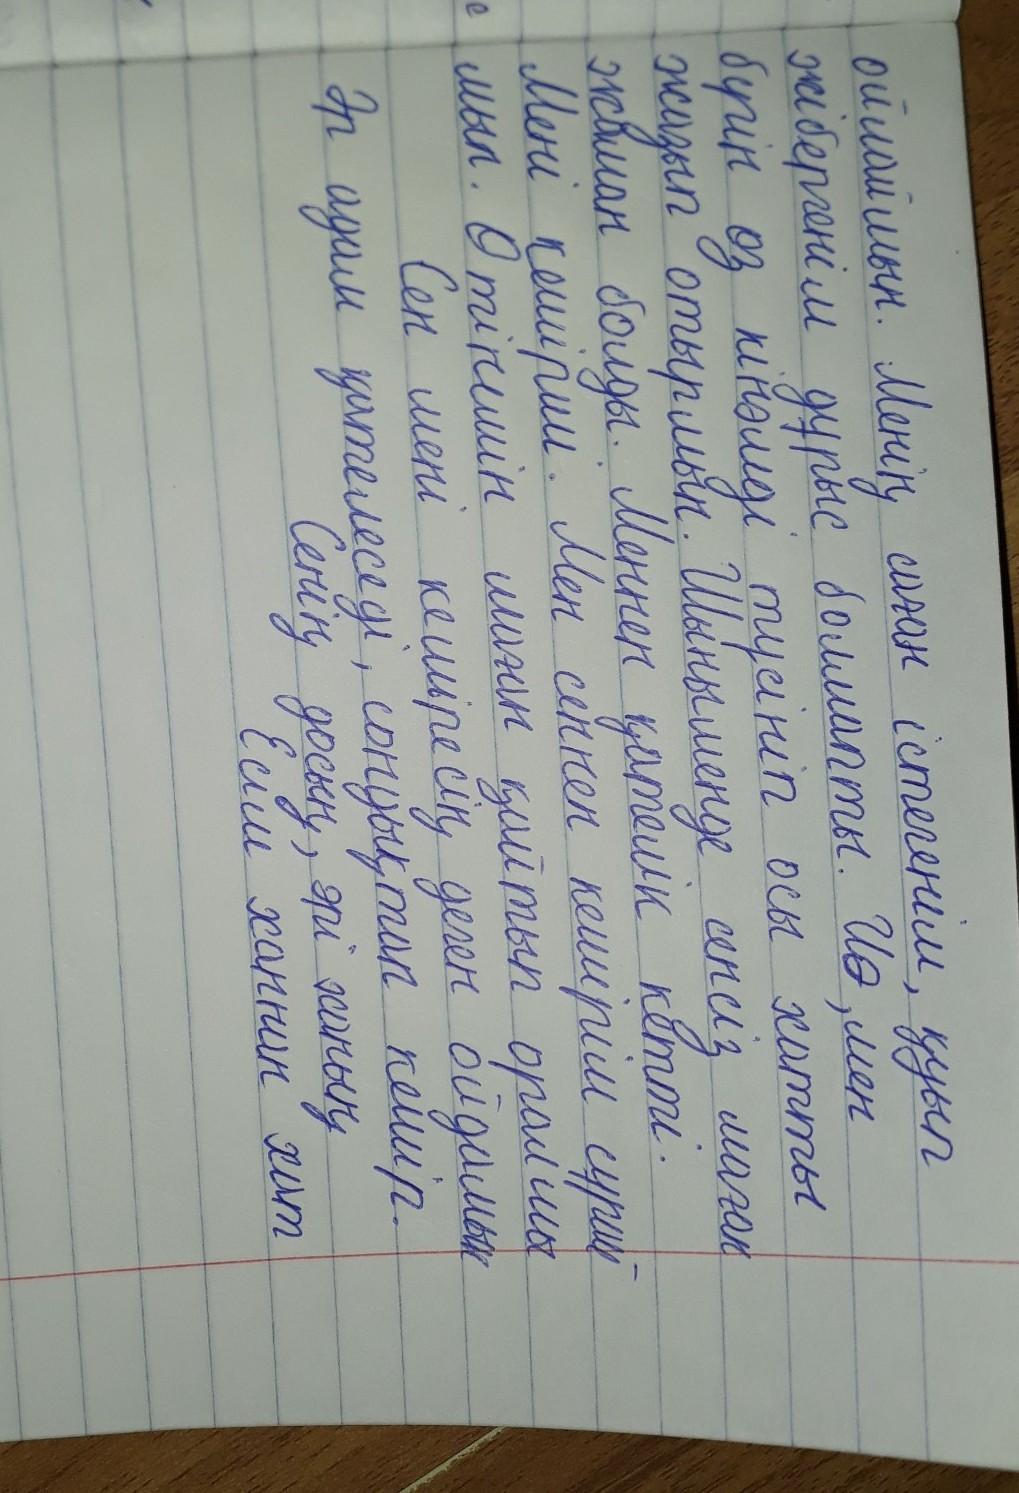 ойлаймын. Менің саған істегенім, қуып
жібергенім дұрыс болмапты. Иә, мен
бүгін өз кінәмді түсініп осы хатты
жазып отырмын. Шыныменде сенсіз маған
жаман болды. Меннен қателік кетті.
Мені кешірші. Мен сеннен кешірім сұрай-
мын. Өтінемін маған қайтып оралшы
Сен мені кешіресің деген ойдамын
Әр адам қателеседі, сондықтан кешір.
Сенің досың, әрі ханың
Есім ханнан хат